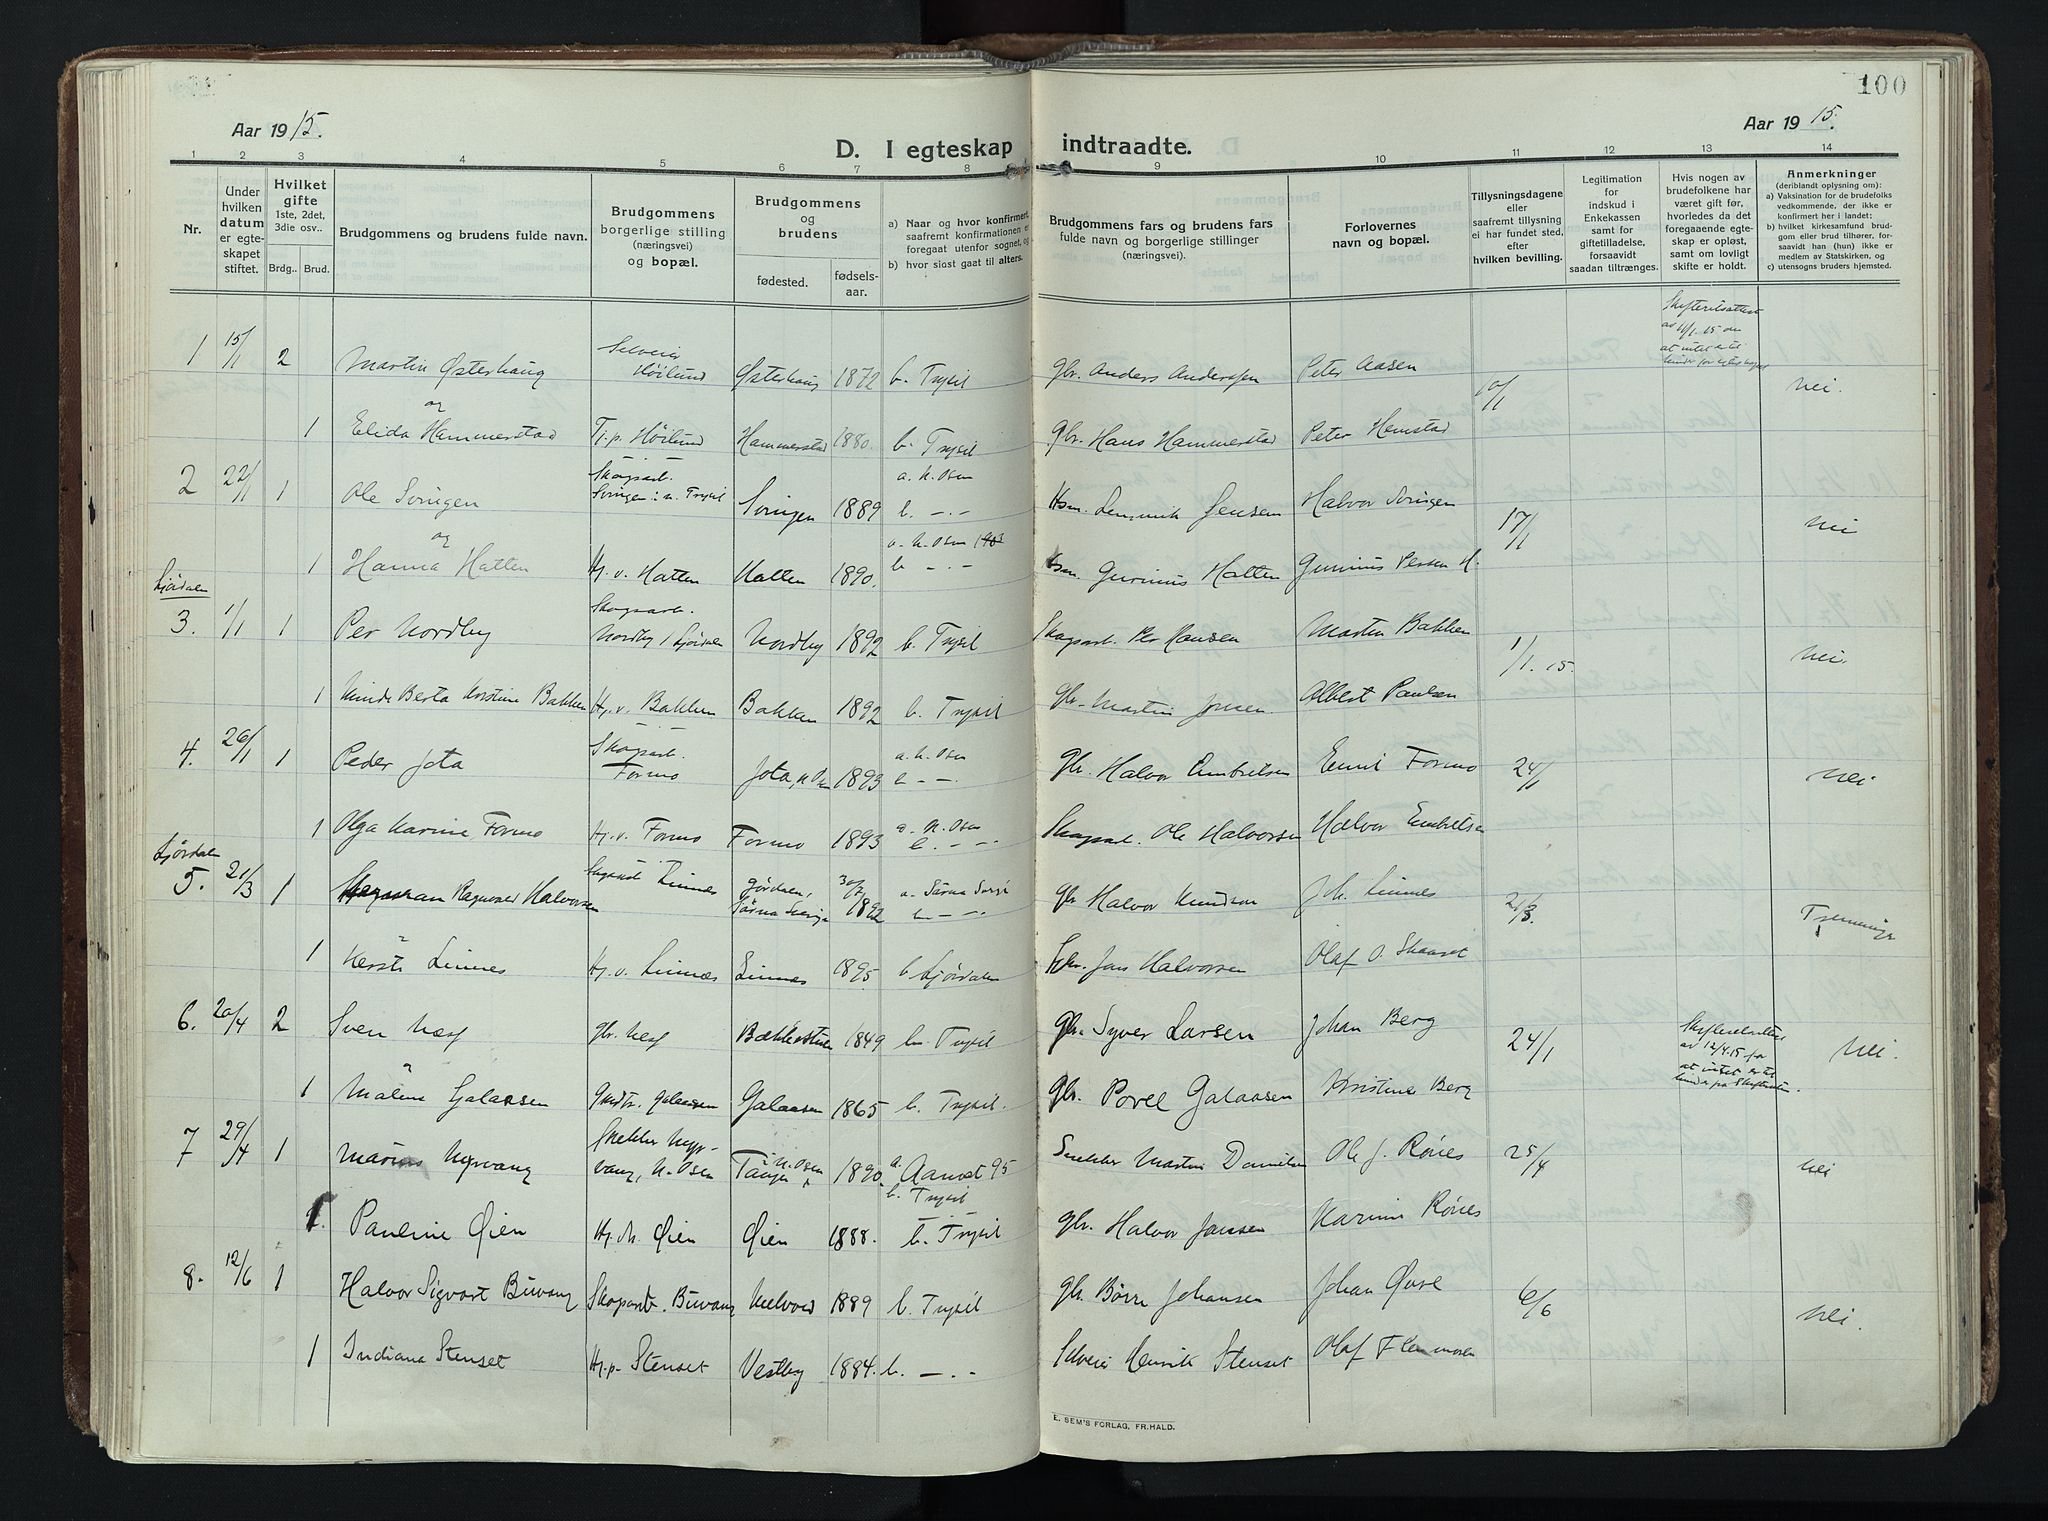 100
Aar 1915.
Aar 1915.
D. I egteskap indtraadte.
1 2 3 4 5 6 7 8 9 10 11 12 13 14
Nr.
Under hvilken datum er egteskapet stiftet.
Hvilket gifte 1ste, 2det, 3die osv..
Brdg.. Brud.
Brudgommens og brudens fulde navn.
Brudgommens borgerlige stilling (næringsvei) og bopæl.
Brudgommens og brudens
fødested.
fødselsaar.
a) Naar og hvor konfirmert, saafremt konfirmationen er foregaat utenfor sognet, og
b) hvor sidst gaat til alters.
Brudgommens fars og brudens fars fulde navn og borgerlige stillinger (næringsvei).
Forlovernes navn og bopæl.
Tillysningsdagene eller saafremt tillysning ei har fundet sted, efter hvilken bevilling.
Legitimation for indskud i Enkekassen samt for giftetilladelse, forsaavidt saadan tiltrænges.
Hvis nogen av brudefolkene har været gift før, hvorledes da det foregaaende egteskap er opløst, samt om lovligt skifte er holdt.
Anmerkninger (deriblandt oplysning om): a) Vaksination for de brudefolks vedkommende, der ikke er konfirmert her i landet; b) hvilket kirkesamfund brudgom eller brud tilhører, forsaavidt han (hun) ikke er medlem av Statskirken, og c) utensogns bruders hjemsted.
1 15/1 2 Martin Østerhaug Selveier Høilund Østerhaug 1872 b. Trysil Gbr. Anders Andersen Peter Aasen nei.
og
1 Elida Hammerstad Tj.p. Høilund Hammerstad 1880. b. Trysil Gbr. Hans Hammerstad Peter Hemstad
2 22/1 1 Ole Svingen Skogsarb. Svingen i n. Trysil Svingen 1889 a. N. Osen b. -.- Hsm. Jensen Halvor Svingen 17/1 nei
og
1 Hanna Hatten Hj. v. Hatten Hatten 1890. a. N. Osen b. -.- Hsm. Gunnius Hatten Gunnius Persen H.
Ljørdalen
3. 1/1 1 Per Nordby Skogsarb. Nordby i Ljørdalen Nordby 1892 b. Trysil Skogsarb. Per Hansen Martin Bakken 1/1.15. nei.
1 Berta Kristine Bakken Hj. v. Bakken Bakken 1892 b. Trysil Gbr. Martin Jonsen. Albert Paulsen
4. 26/1 1 Peder Jota Skogsarb. Formo Jota, N. Osen 1893 a. N. Osen b. - -. Gbr. Halvor Embretsen Emil Formo 24/1 nei
1 Olga Karine Formo Hj. v. Formo Formo 1893 a. N. Osen b. - -. Skogsarb. Ole Halvorsen Halvor Embretsen
Ljørdalen
5. 21/3 1 Ragnvald Halvorsen Skogsarb. Linnes Gjørdalen, Särna Sverige 30/7 1892 a. Särna Sverige b. - -. Gbr Halvor Knudsen Joh. Linnes 21/3.
1 Kersti Linnes Hj. v. Linnes Linnes 1895 b. Ljørdalen Gbr. Jens Halvorsen Olaf O. Skaaret
6. 20/4 2 Sven Næss Gbr. Næss Bækkestuen 1849 b. Trysil Gbr. Syver Larsen Johan Berg 24/1 Skifteretsattest av 12/4.15 for at intet er til hinder paa Skifteretten. nei.
1 Maline Galaasen Gaardbr. Galaasen Galaasen 1865 b. Trysil. Gbr. Povel Galaasen Kristine Berg
7 29/4 1 Marius Nyvang Snekker Nyvang, N. Osen Tangen i N. Osen 1890. a. Aamot 95 b. Trysil Snekker Martin Danielsen Ole J. Rønes 25/4 nei
1. Pauline Øien Hj. Øien Øien 1888. b. Trysil Gbr. Halvor Jansen Karine Rønes
8. 12/6 1 Halvor Sigvart Buvang Skogsarb. Buvang Melvold 1889 b. Trysil Gbr. Børre Johansen Johan Øvre 6/6 nei.
1 Indiana Stenset Hj. p. Stenset Vestby 1884. b. -.- Selveier Henrik Stenset Olaf Flenmoen
E. SEM'S FORLAG, FR.HALD.